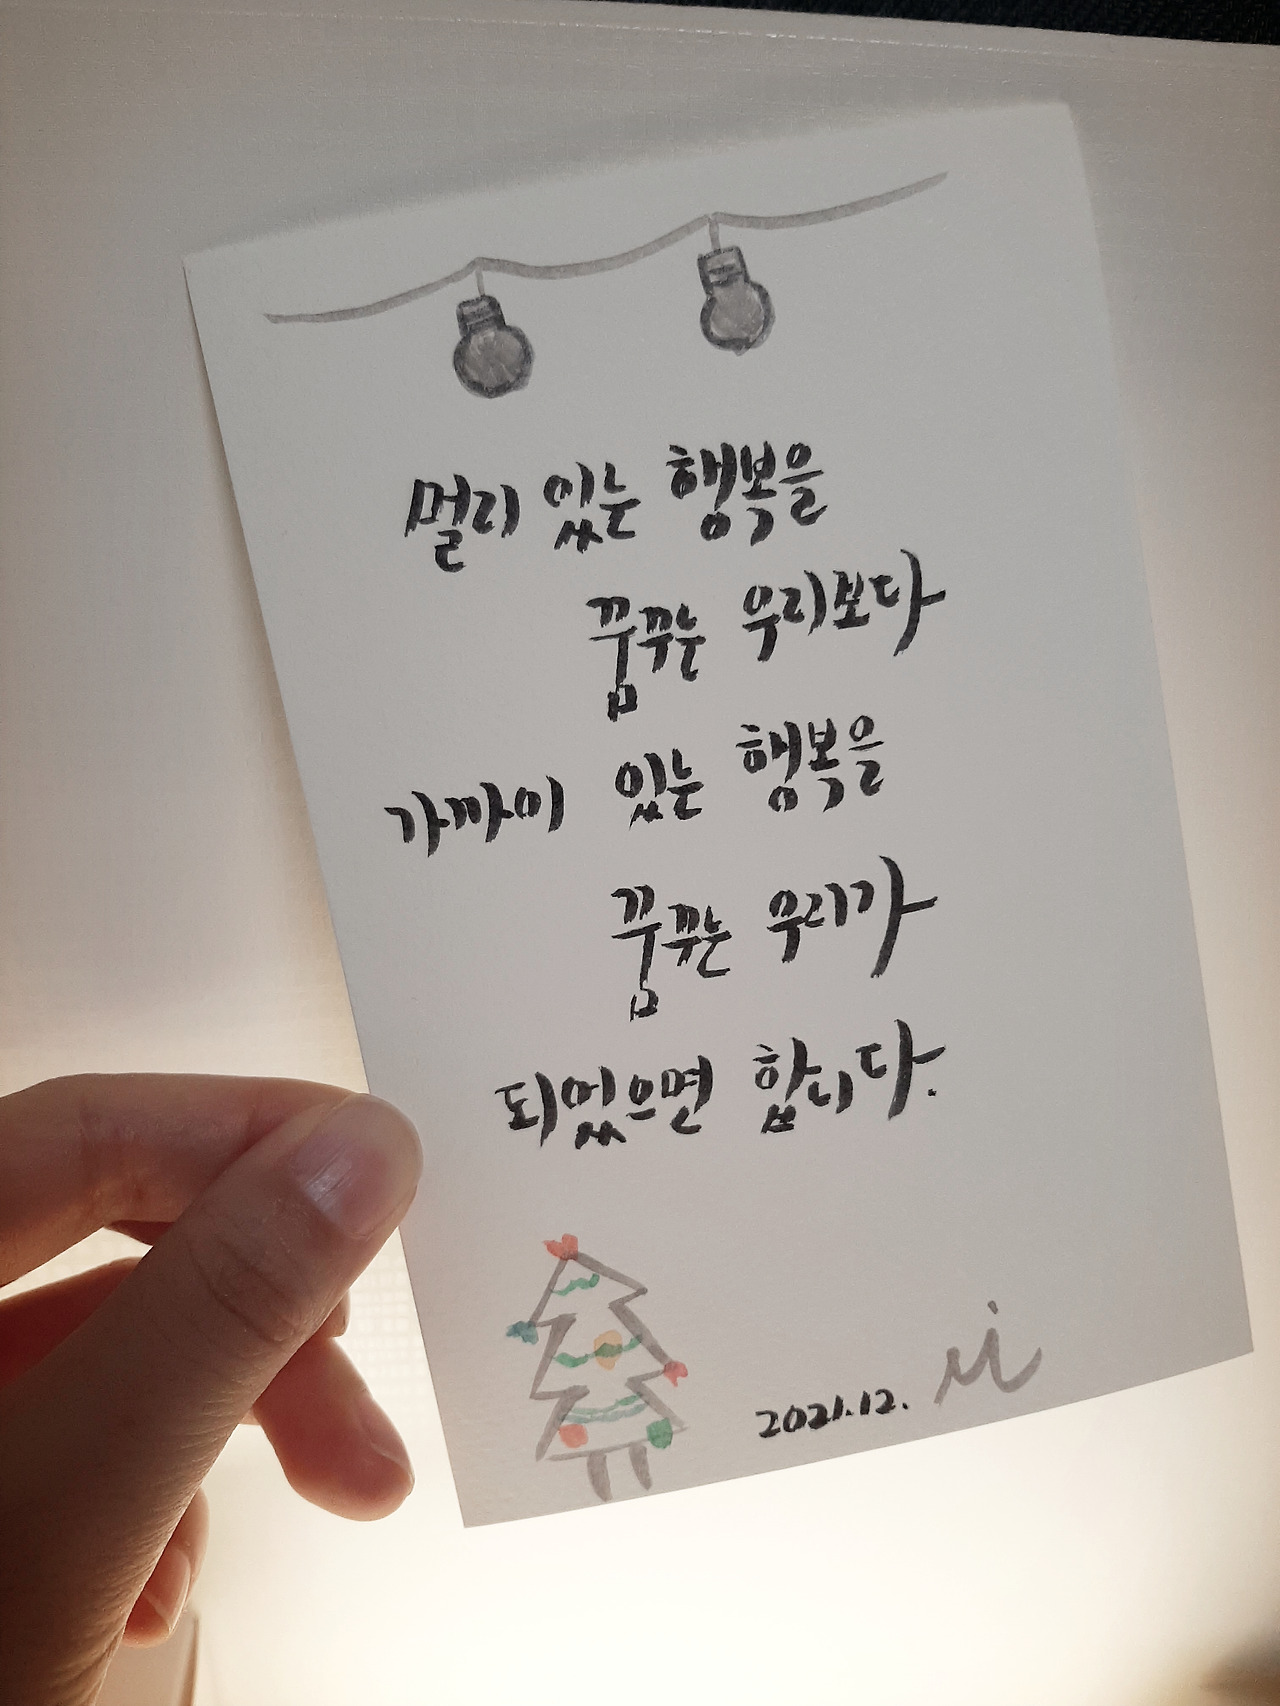 멀리 있는 행복을
꿈꾸는 우리보다
가까이 있는 행복을
꿈꾸는 우리가
되었으면 합니다.
2021.12.